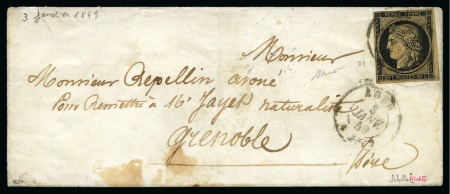 3 Janvier 1849
REPUB. FRANC.
Monsieur
Monsieur Repellin avoué
Pour Remettre à Mr Jayet naturaliste
Grenoble
Isère
3
JANV.